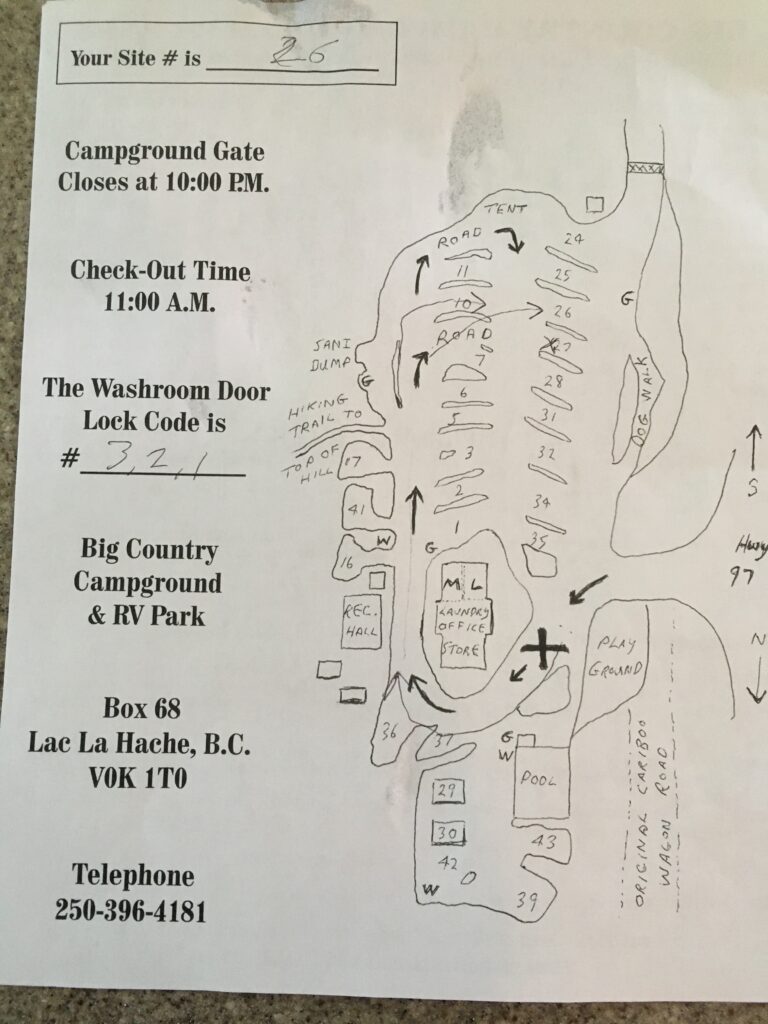 Your Site # is 26
Campground Gate
Closes at 10:00 P.M.
Check-Out Time
11:00 A.M.
The Washroom Door
Lock Code is
# 3,2,1
Big Country
Campground
& RV Park
Box 68
Lac La Hache, B.C.
V0K 1T0
Telephone
250-396-4181
TENT
ROAD
24
11
25
G
10
26
ROAD
27
SANI
DUMP
G
7
28
DOG WALK
6
HIKING
TRAIL TO
TOP OF
HILL
5
31
17
3
32
2
34
41
1
35
W
G
16
S
Hwy
97
N
M L
LAUNDRY
OFFICE
STORE
REC.
HALL
PLAY
GROUND
36
37
G
W
POOL
29
30
42
43
W
39
ORIGINAL CARIBOO
WAGON ROAD